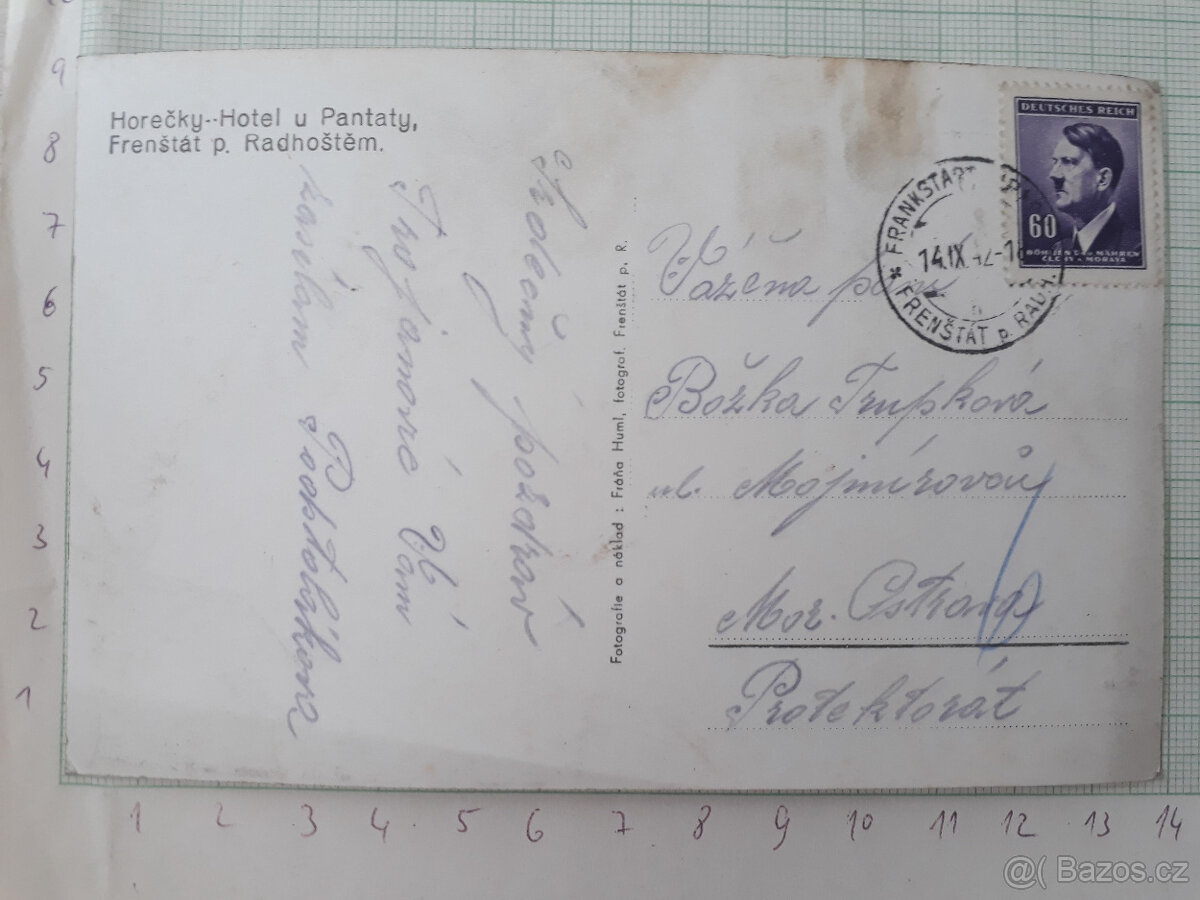 Horečky--Hotel u Pantaty,
Frenštát p. Radhoštěm.
Srdečný pozdrav
z Trojanovic Vám
zasílám
Fotografie a náklad : Fráňa Huml, fotograf. Frenštát p. R.
DEUTSCHES REICH
60
BÖHMEN UND MÄHREN
ČECHY A MORAVA
FRANKSTADT
14.IX.42-18
FRENŠTÁT p. RADH.
Vážena paní
Božka Trupková
ul. Mojmírovců
Mor. Ostrava
Protektorát
9
8
7
6
5
4
3
2
1
1 2 3 4 5 6 7 8 9 10 11 12 13 14
@( Bazos.cz